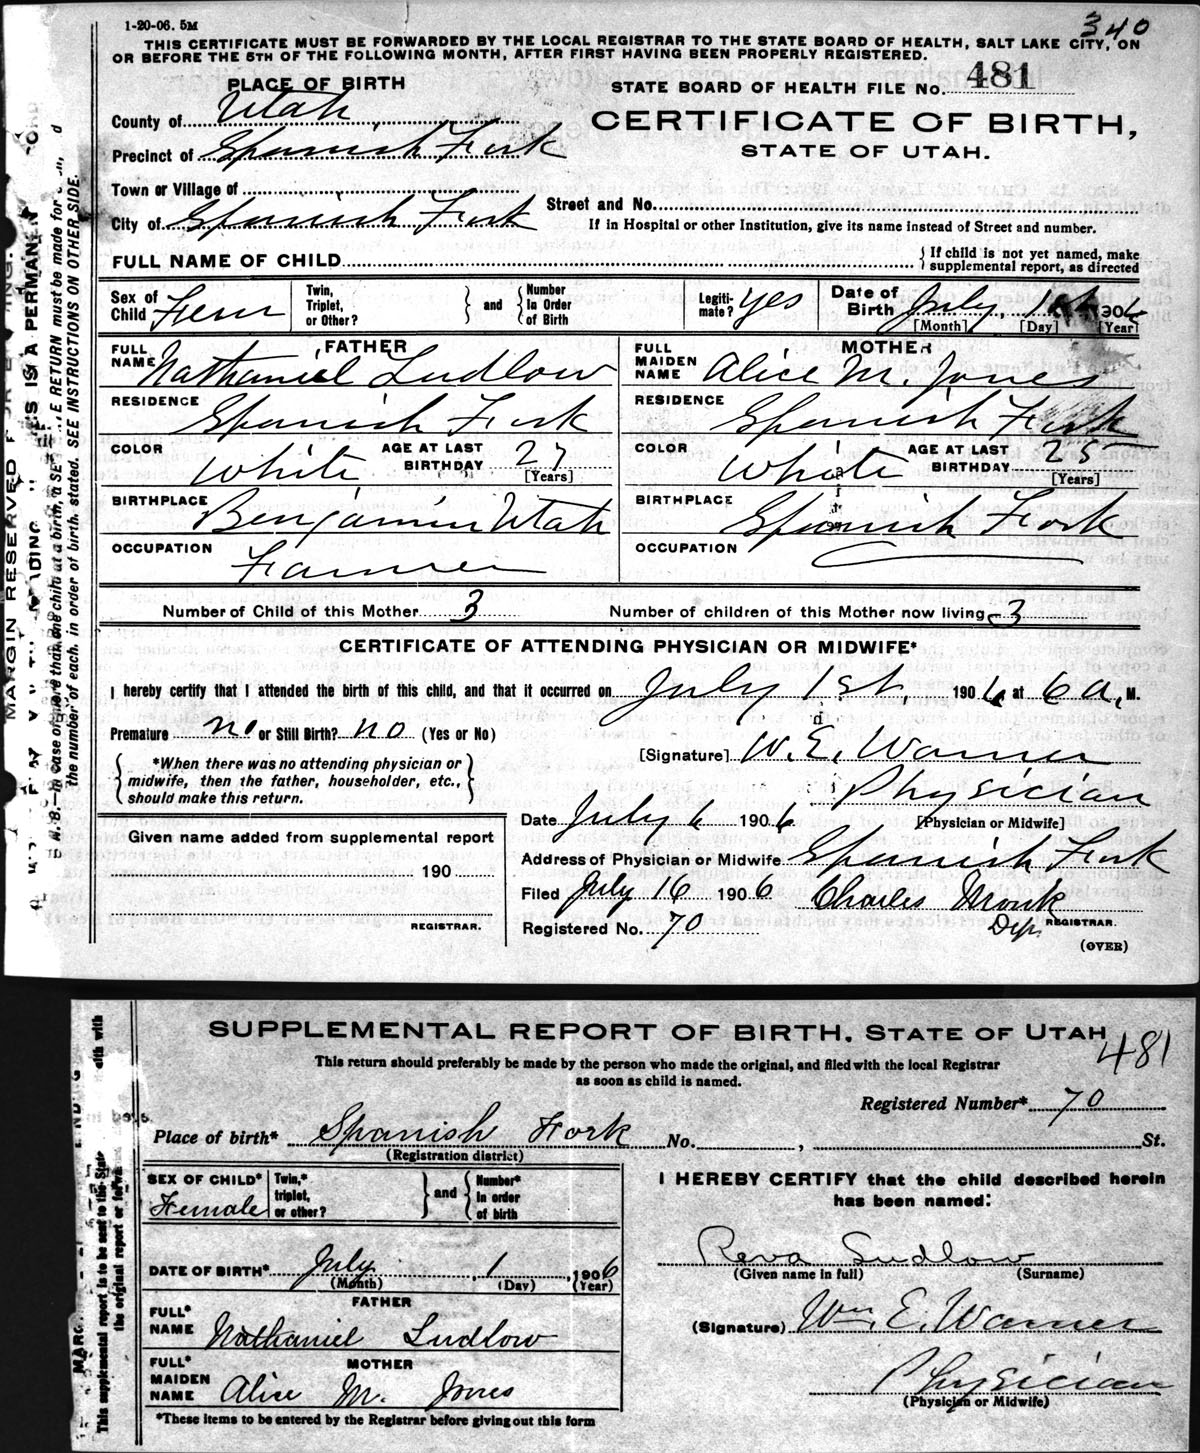 340
1-20-06. 5M
THIS CERTIFICATE MUST BE FORWARDED BY THE LOCAL REGISTRAR TO THE STATE BOARD OF HEALTH, SALT LAKE CITY, ON
OR BEFORE THE 5TH OF THE FOLLOWING MONTH, AFTER FIRST HAVING BEEN PROPERLY REGISTERED.
PLACE OF BIRTH
STATE BOARD OF HEALTH FILE No. 481
County of Utah
CERTIFICATE OF BIRTH,
Precinct of Spanish Fork
STATE OF UTAH.
Town or Village of
City of Spanish Fork Street and No.
If in Hospital or other Institution, give its name instead of Street and number.
FULL NAME OF CHILD { If child is not yet named, make
supplemental report, as directed
Sex of Child Fem Twin, Triplet, or Other? } and { Number In Order of Birth Legiti-mate? yes Date of Birth July, 1st 1906
[Month] [Day] [Year]
FATHER MOTHER
FULL NAME Nathaniel Ludlow FULL MAIDEN NAME Alice M. Jones
RESIDENCE Spanish Fork RESIDENCE Spanish Fork
COLOR White AGE AT LAST BIRTHDAY 27 [Years] COLOR White AGE AT LAST BIRTHDAY 25 [Years]
BIRTHPLACE Benjamin Utah BIRTHPLACE Spanish Fork
OCCUPATION Farmer OCCUPATION
Number of Child of this Mother 3 Number of children of this Mother now living 3
CERTIFICATE OF ATTENDING PHYSICIAN OR MIDWIFE*
I hereby certify that I attended the birth of this child, and that it occurred on July 1st, 1906 at 6 a, M.
Premature no or Still Birth? no (Yes or No)
[Signature] W. E. Warner
{ *When there was no attending physician or
midwife, then the father, householder, etc.,
should make this return. }
Physician
Date July 6 1906 [Physician or Midwife]
Given name added from supplemental report
Address of Physician or Midwife Spanish Fork
190
Filed July 16 1906 Charles Monk
REGISTRAR. Registered No. 70 Dep. REGISTRAR.
(OVER)
MARGIN RESERVED
IS IS A PERMANEN
N. B.—In case of more than one child at a birth, a SE E RETURN must be made for
the number of each, in order of birth, stated. SEE INSTRUCTIONS ON OTHER SIDE.
SUPPLEMENTAL REPORT OF BIRTH, STATE OF UTAH
481
This return should preferably be made by the person who made the original, and filed with the local Registrar
as soon as child is named.
Registered Number* 70
Place of birth* Spanish Fork No. , St.
(Registration district)
SEX OF CHILD* Female Twin,* triplet, or other? } and { Number* In order of birth
DATE OF BIRTH* July 1, 1906
(Month) (Day) (Year)
FATHER
FULL* NAME Nathaniel Ludlow
MOTHER
FULL* MAIDEN NAME Alice M. Jones
*These items to be entered by the Registrar before giving out this form
I HEREBY CERTIFY that the child described herein
has been named:
Reva Ludlow
(Given name in full) (Surname)
(Signature) Wm. E. Warner
Physician
(Physician or Midwife)
This supplemental report is to be sent to the State
the original report or follow